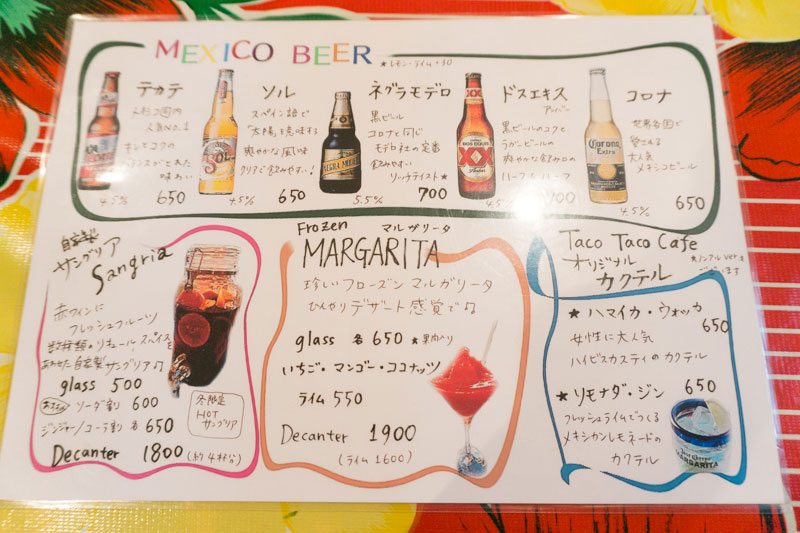 MEXICO BEER
*レモン・ライム+30
テカテ
メキシコ国内
人気No.1
キレとコクの
バランスがとれた
味わい
4.5% 650
ソル
スペイン語で
"太陽"を意味する
爽やかな風味
クリアで飲みやすい!
4.5% 650
ネグラモデロ
黒ビール
コロナと同じ
モデロ社の定番
飲みやすい
リッチテイスト★
5.5% 700
ドスエキス
アンバー
黒ビールのコクと
ラガービールの
爽やかな飲み口の
ハーフ&ハーフ
4.5% 700
コロナ
世界各国で
愛される
大人気
メキシコビール
4.5% 650
自家製
サングリア
Sangria
赤ワインに
フレッシュフルーツ
柑橘類・リキュール スパイスを
あわせた自家製サングリア♫
glass 500
ソーダ割 600
ジンジャー/コーラ割 各650
冬限定
HOT
サングリア
Decanter 1800 (約4杯分)
Frozen マルガリータ
MARGARITA
珍しいフローズン マルガリータ
ひんやりデザート感覚で♫
glass 各 650 ★果肉入り
いちご・マンゴー・ココナッツ
ライム 550
Decanter 1900
(ライム 1600)
Taco Taco Cafe
オリジナル
カクテル
*ノンアルver.も
ございます
★ ハマイカ・ウォッカ
650
女性に大人気
ハイビスカスティのカクテル
★ リモナダ・ジン 650
フレッシュライムでつくる
メキシカンレモネードの
カクテル
SOL
DOS EQUIS
XX
Corona
Extra
MARGARITA